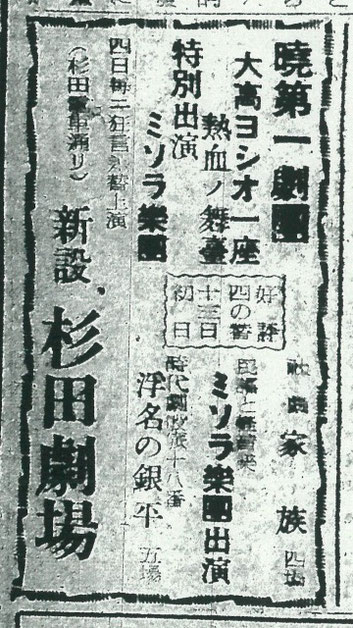 曉第一劇團
大高ヨシオ一座
熱血ノ舞臺
特別出演
ミソラ樂團
好評
四の替
十三日
初日
劇 家族 四
民謠と輕音
ミソラ樂團出演
時代劇 十八番
浮名の銀平 五場
四日毎ニ狂言 替上演
(杉田電車通リ)
新設 杉田劇場